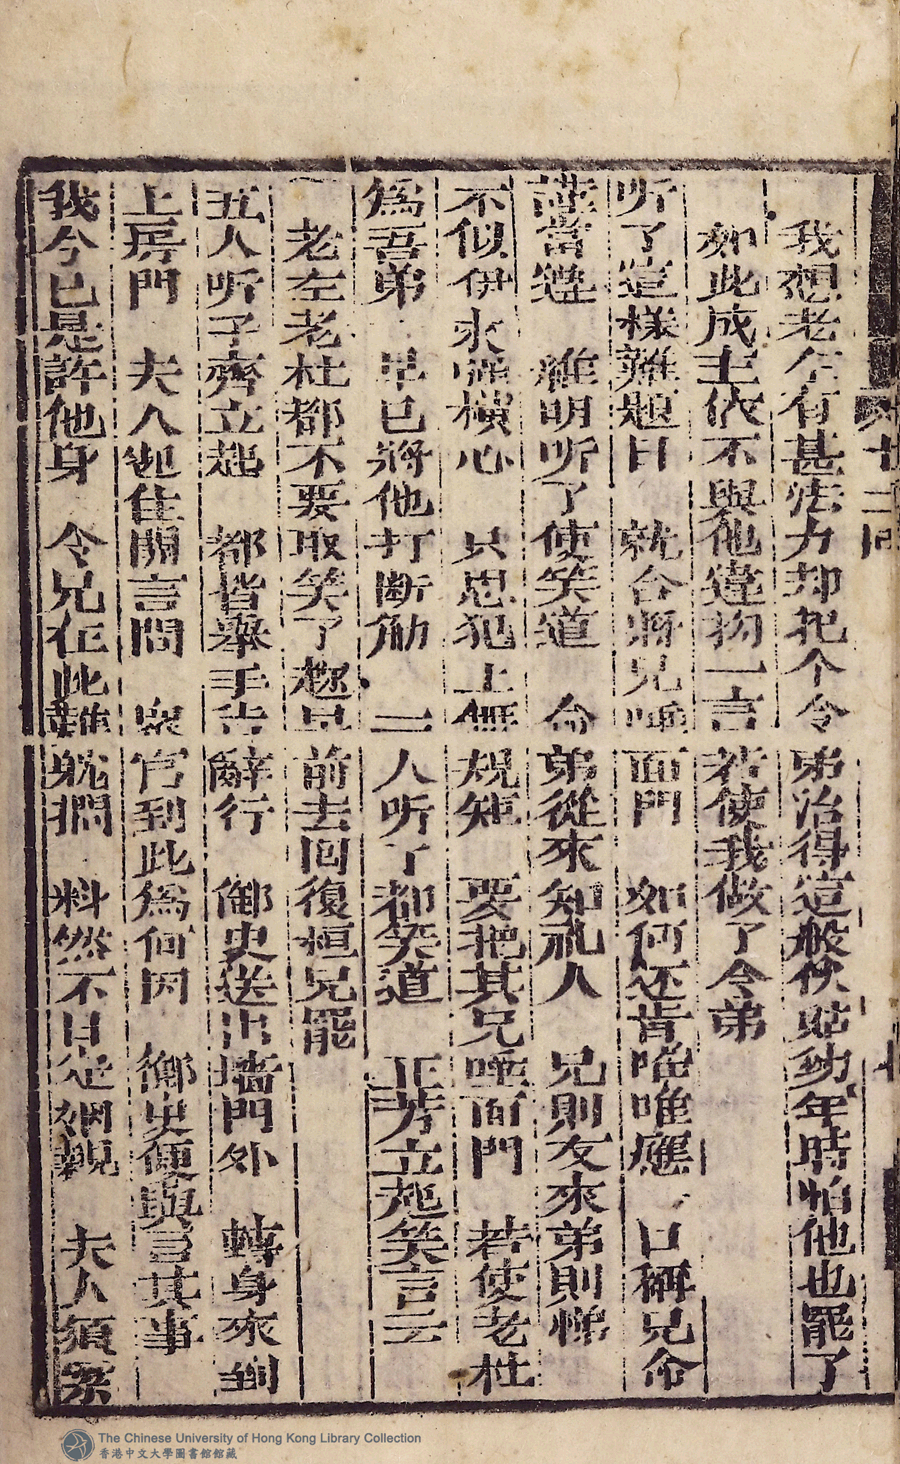 我想老左有甚法力却把个令弟治得這般伏貼幼年時怕他也罷了
如此成主依不與他違拗一言若使我做了令弟
听了這樣難題目 就合將兄唾面門 如何还肯唯唯應 口稱兄命
當 維明听了使笑道 令弟從來知礼人 兄則友來弟則悌
不似伊家強横心 只思犯上無規矩 要把其兄唾面門 若使老杜
為吾弟 早已將他打断觔 二人听了都笑道 正芳立起笑言云
老左老杜都不要取笑了 兄前去回復桓兄罷
五人听了齊立起 都皆舉手告辭行 御史送出墻門外 轉身來到
上房門 夫人起住開言問 衆官到此為何因 御史便與言其事
我今已是許他身 令兄在此難躭擱 料然不日定姻親 夫人須
卅二回
The Chinese University of Hong Kong Library Collection
香港中文大學圖書館館藏